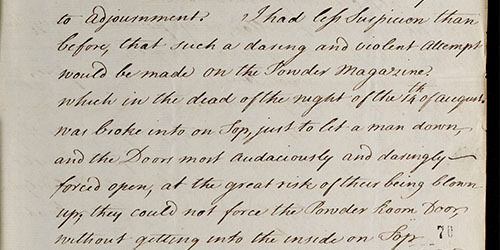 to Adjournment. I had less Suspicion than
before, that such a daring and violent Attempt
would be made on the Powder Magazine.
which in the dead of the night of the 14th of August
was broke into on Top, just to let a man down,
and the Doors most audaciously and daringly
forced open, at the great risk of their being blown
up; they could not force the Powder Room Door,
without getting into the inside on Top.
70